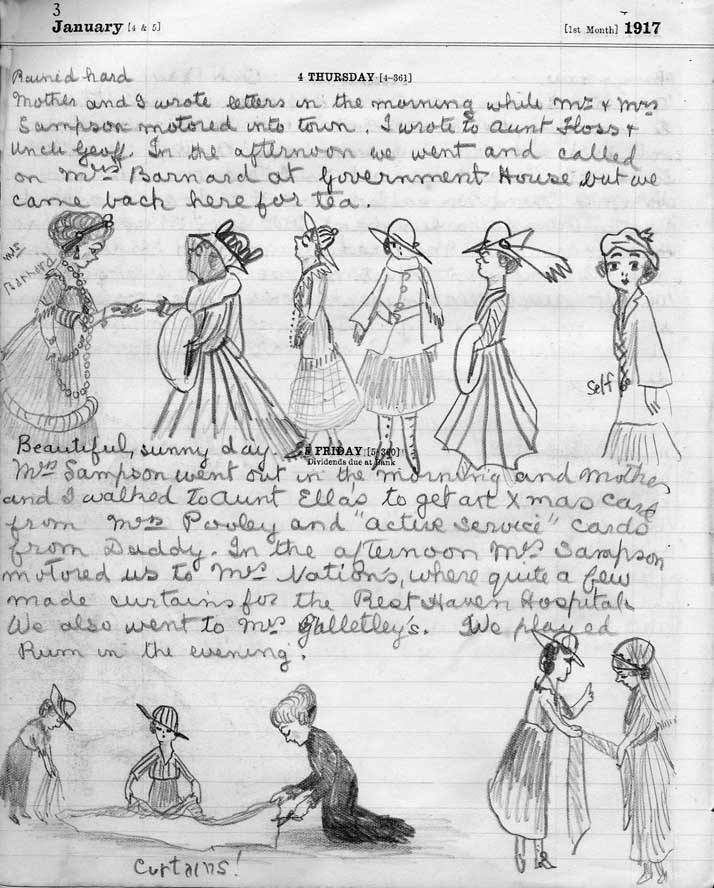 3
January [4 & 5] [1st Month] 1917
Rained hard 4 THURSDAY [4-361]
Mother and I wrote letters in the morning while Mr & Mrs
Sampson motored into town. I wrote to Aunt Floss &
Uncle Geoff. In the afternoon we went and called
on Mrs Barnard at Government House but we
came back here for tea.
Mrs
Barnard
Self
Beautiful, sunny day. 5 FRIDAY [5-360]
Dividends due at Bank
Mrs Sampson went out in the morning and Mother
and I walked to Aunt Ellas to get art Xmas card
from Mrs Pooley and "active service" cards
from Daddy. In the afternoon Mrs Sampson
motored us to Mrs Nation's, where quite a few
made curtains for the Rest Haven Hospital.
We also went to Mrs Galletley's. We played
Rum in the evening.
Curtains!